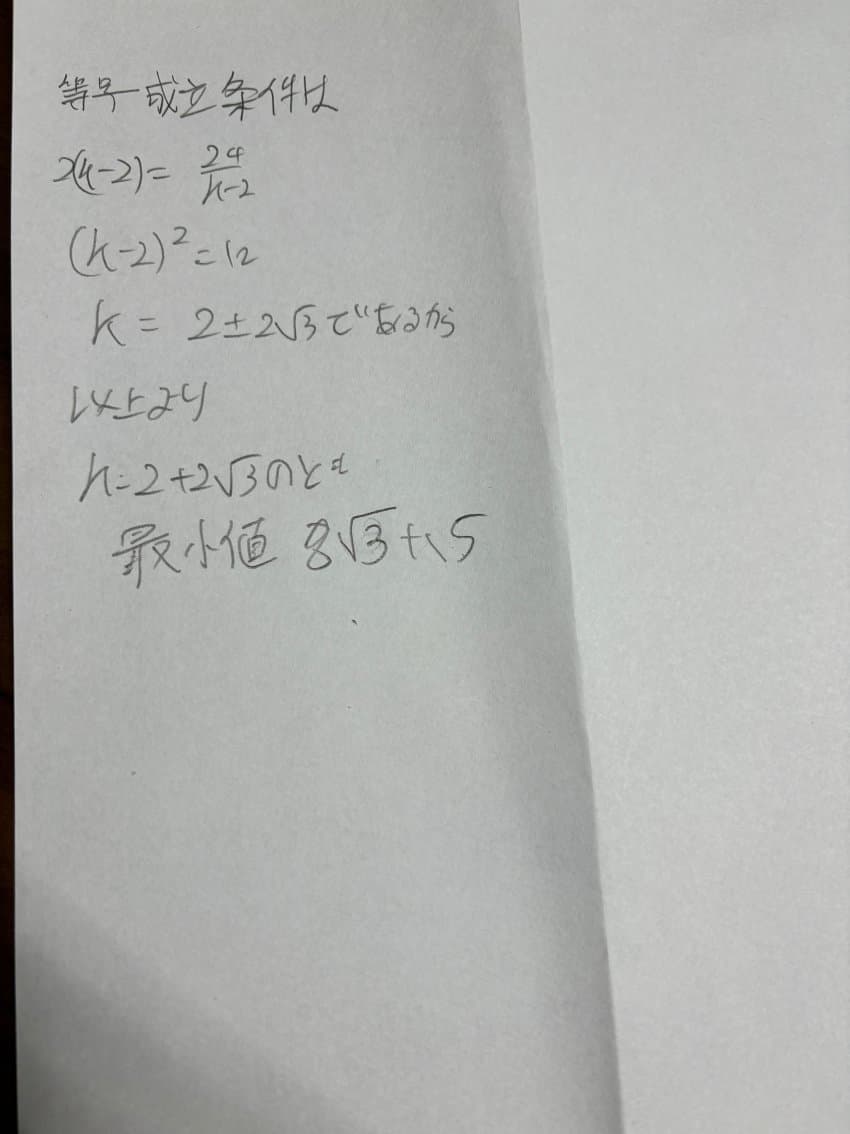 等号成立条件は
2(k-2)= 24/k-2
(k-2)²=12
k = 2±2√3であるから
以上より
k=2+2√3のとき
最小値 8√3+15